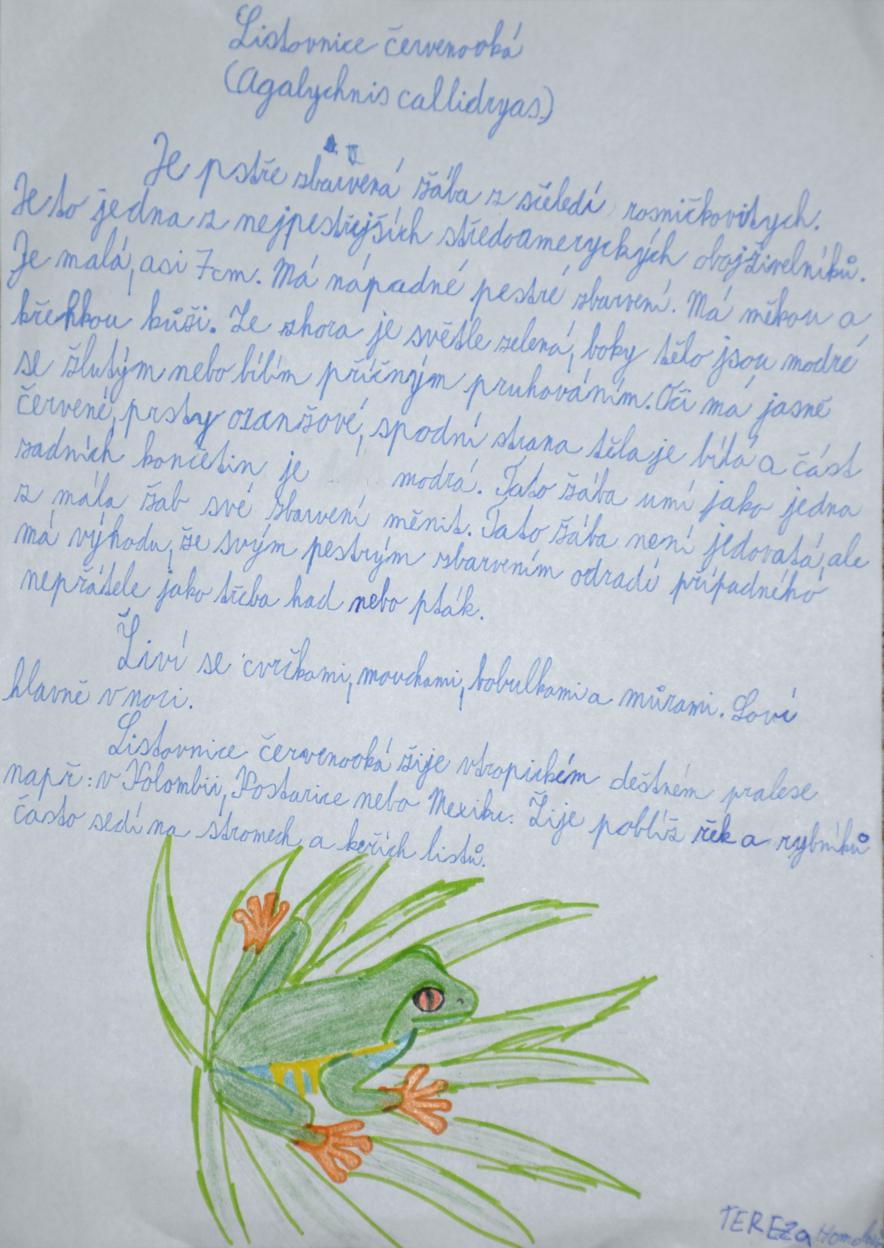 Listovnice červenooká
(Agalychnis callidryas)
Je pstře zbarvená žába z čeledi rosničkovitych.
Je to jedna z nejpestřejších středoameryckých obojživelníků.
Je malá, asi 7cm. Má nápadné pestré zbarvení. Má měkou a
křehkou kůži. Ze zhora je světle zelená, boky tělo jsou modré
se žlutým nebo bílím příčným pruhováním. Oči má jasně
červené, prsty oranžové, spodní strana těla je bílá a část
zadních končetin je modrá. Tato žába umí jako jedna
z mála žab své zbarvení měnit. Tato žába není jedovatá, ale
má výhodu, že svým pestrým zbarvením odradí případného
nepřátele jako třeba had nebo pták.
Živí se cvrčkami, mouchami, bobulkami a můrami. Loví
hlavně v noci.
Listovnice červenooká žije v tropickém deštném pralese
např: v Kolombii, Kostarice nebo Mexiku. Žije poblíž řek a rybníků
často sedí na stromech a keřích listů.
TEREZA